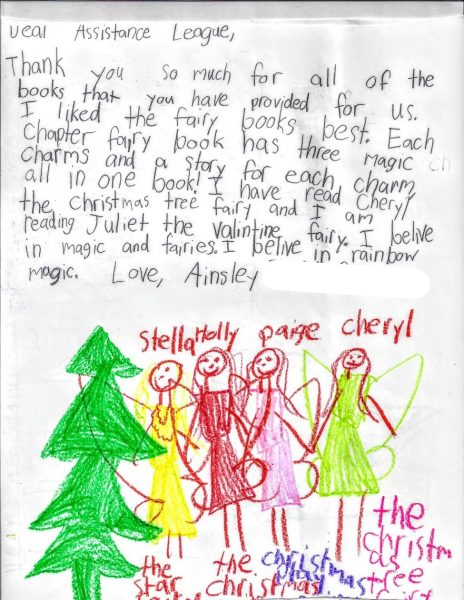 Dear Assistance League,
Thank you so much for all of the
books that you have provided for us.
I liked the fairy books best. Each
Chapter fairy book has three magic ch
Charms and a story for each charm
all in one book! I have read Cheryl
the Christmas tree fairy and I am
reading Juliet the valintine fairy. I belive
in magic and fairies. I belive in rainbow
magic. Love, Ainsley
stella Holly paige cheryl
the
star
the
christmas
christmas
play
the
christm
as
tree